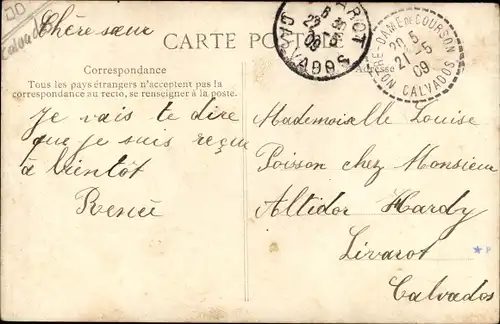 Calvados
Chère sœur
CARTE POSTALE
Correspondance
Tous les pays étrangers n'acceptent pas la
correspondance au recto, se renseigner à la poste.
Adresse
NOTRE-DAME DE COURSON
20 5
21-5
09
CALVADOS
22-5
09
CALVADOS
Je vais te dire
que je suis reçue
à bientôt
Renée
Mademoiselle Louise
Poisson chez Monsieur
Altidor Hardy
Livarot
Calvados